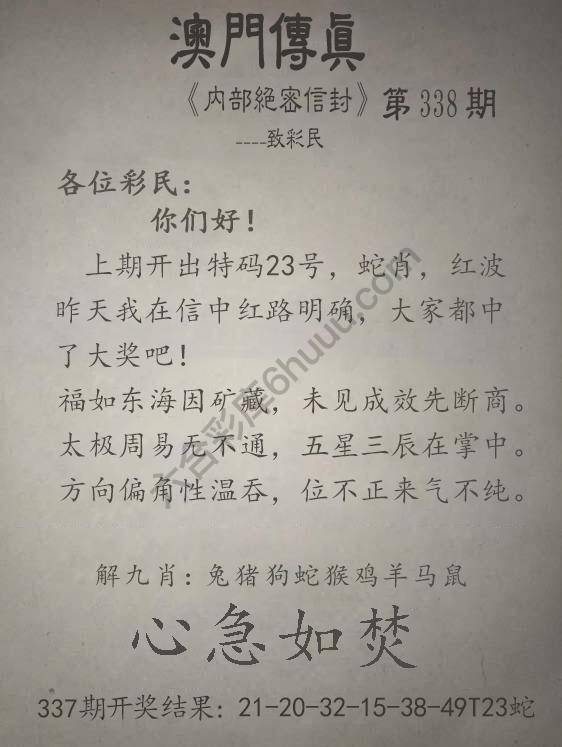 澳門傳眞
《内部絕密信封》第338期
----致彩民
各位彩民：
你们好！
上期开出特码23号，蛇肖，红波
昨天我在信中红路明确，大家都中
了大奖吧！
福如东海因矿藏，未见成效先断商。
太极周易无不通，五星三辰在掌中。
方向偏角性温吞，位不正来气不纯。
解九肖：兔猪狗蛇猴鸡羊马鼠
心急如焚
337期开奖结果：21-20-32-15-38-49T23蛇
六合彩库6huuu.com